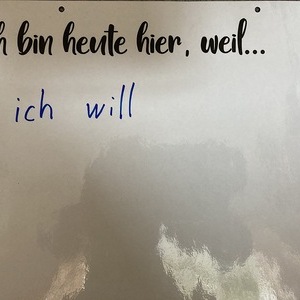 h bin heute hier, weil...
ich will